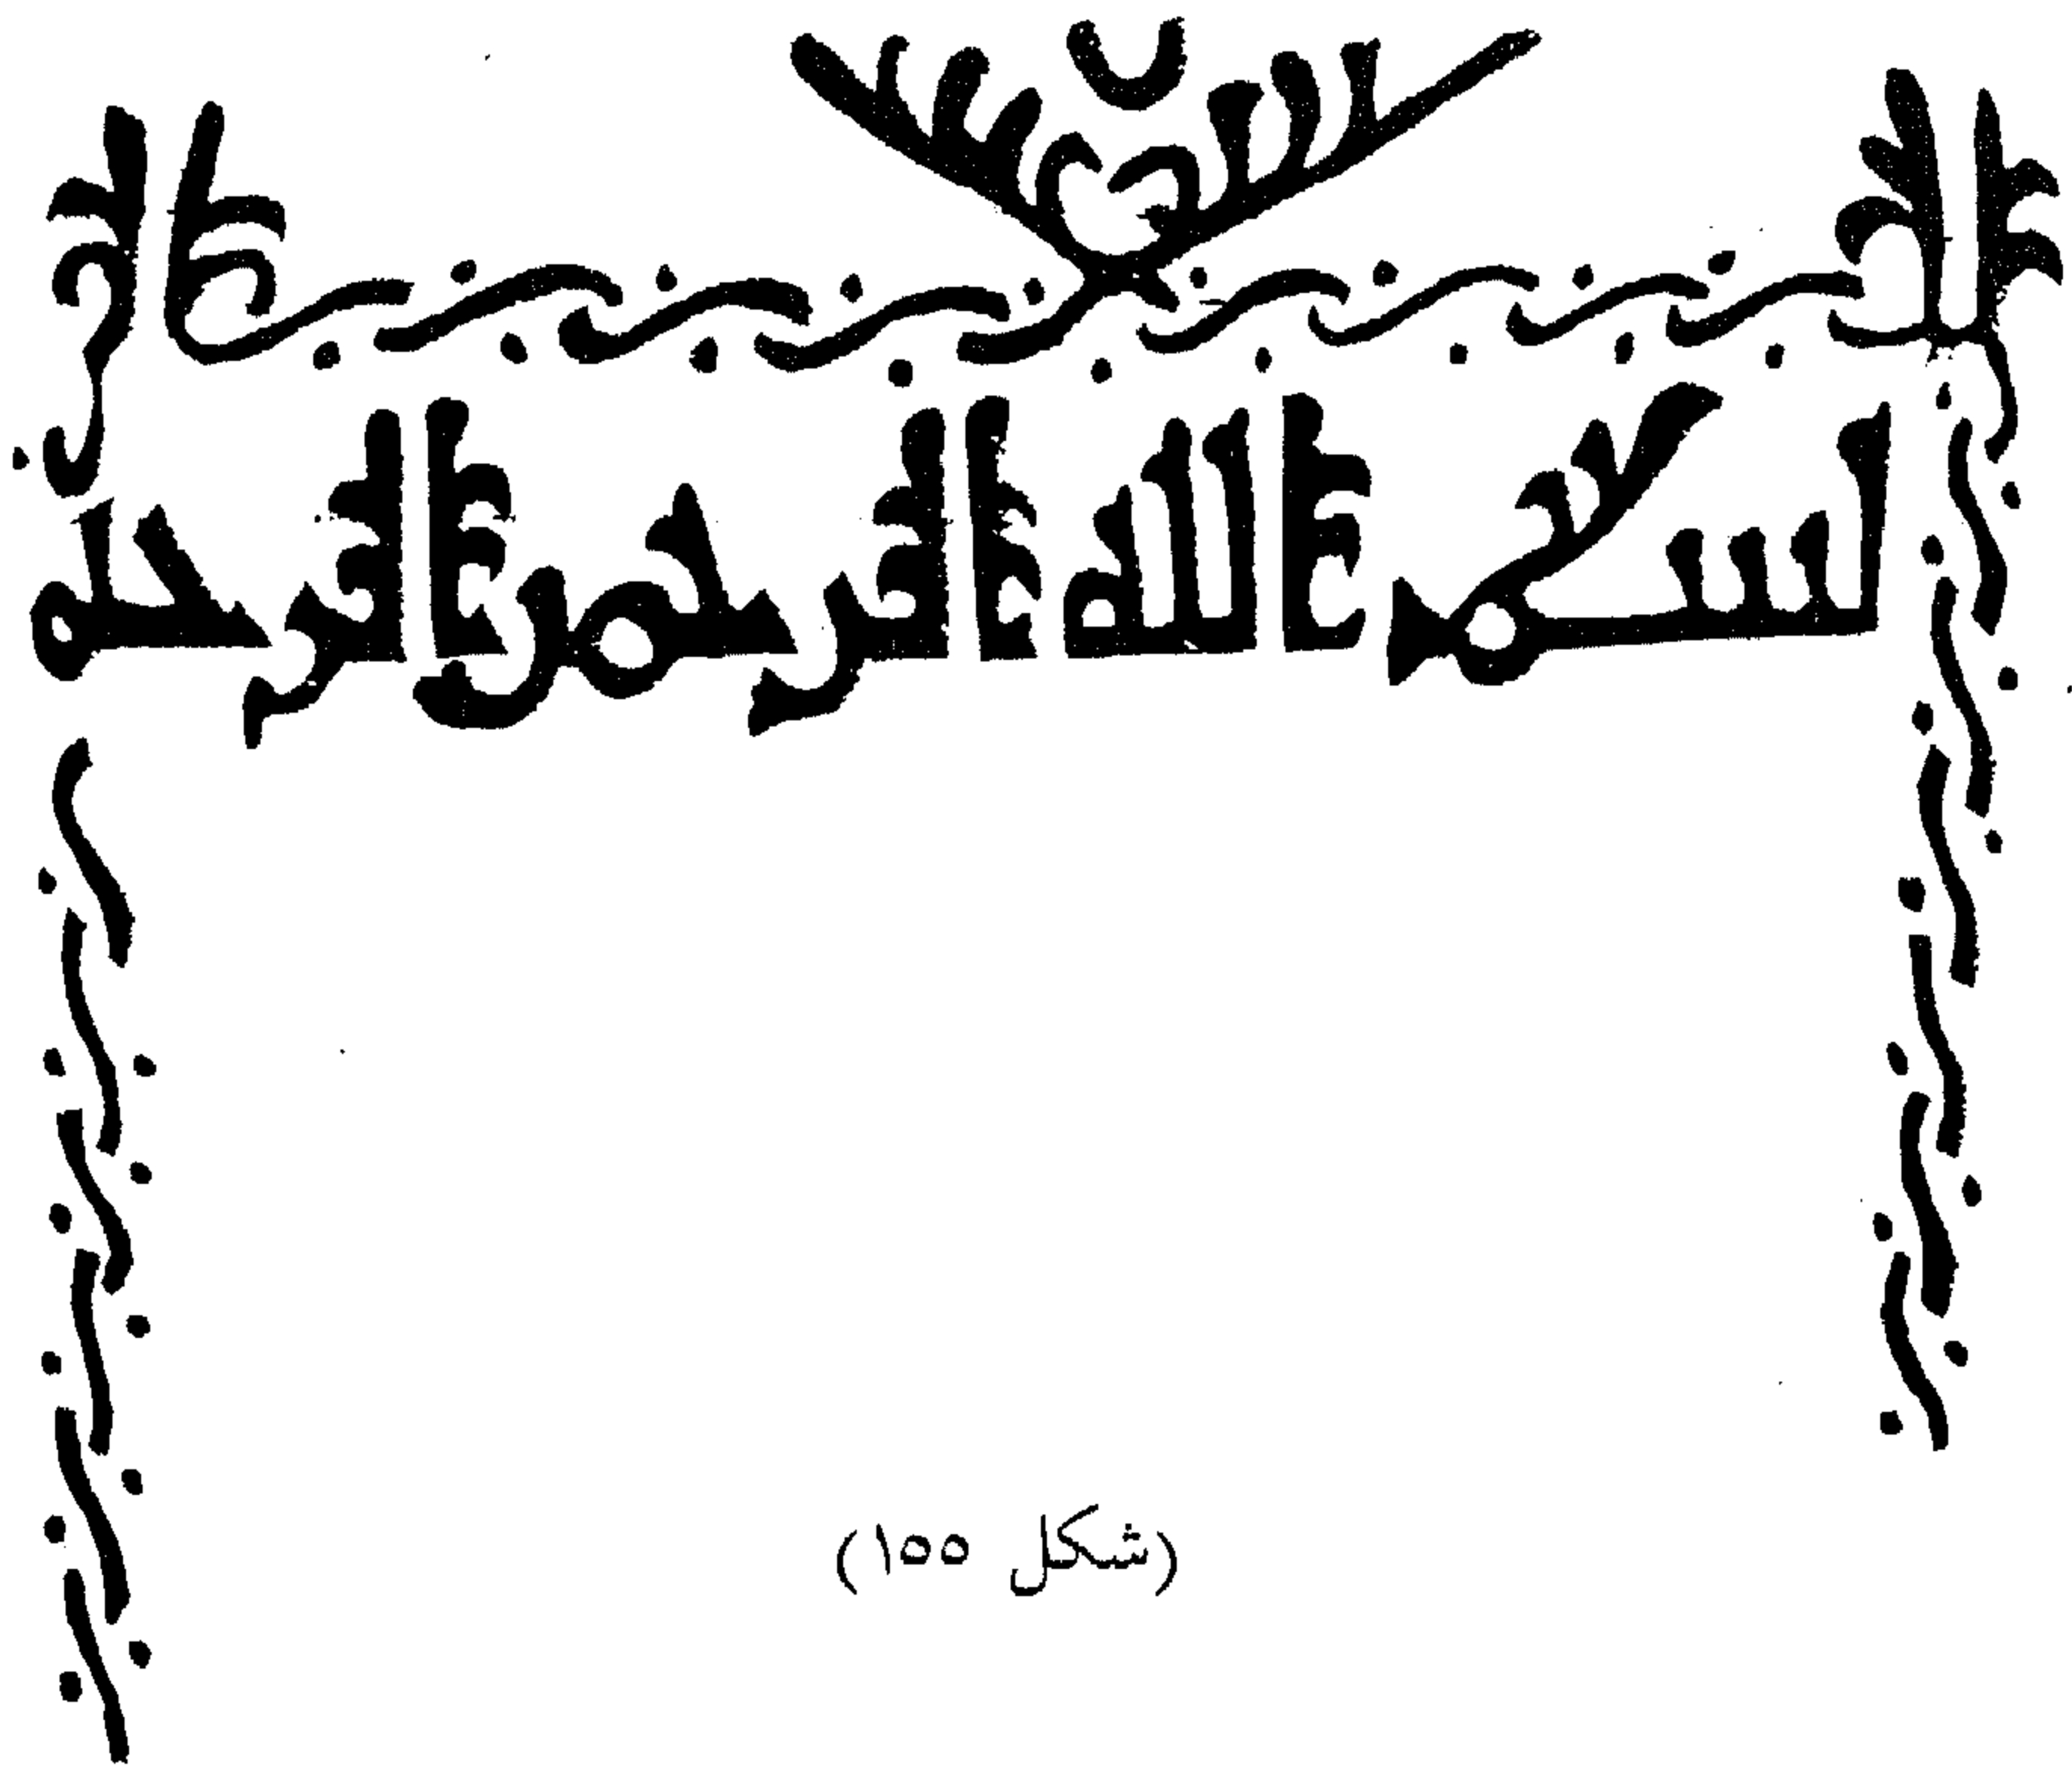 بسم الله الرحمن الرحيم
(شكل ١٥٥)